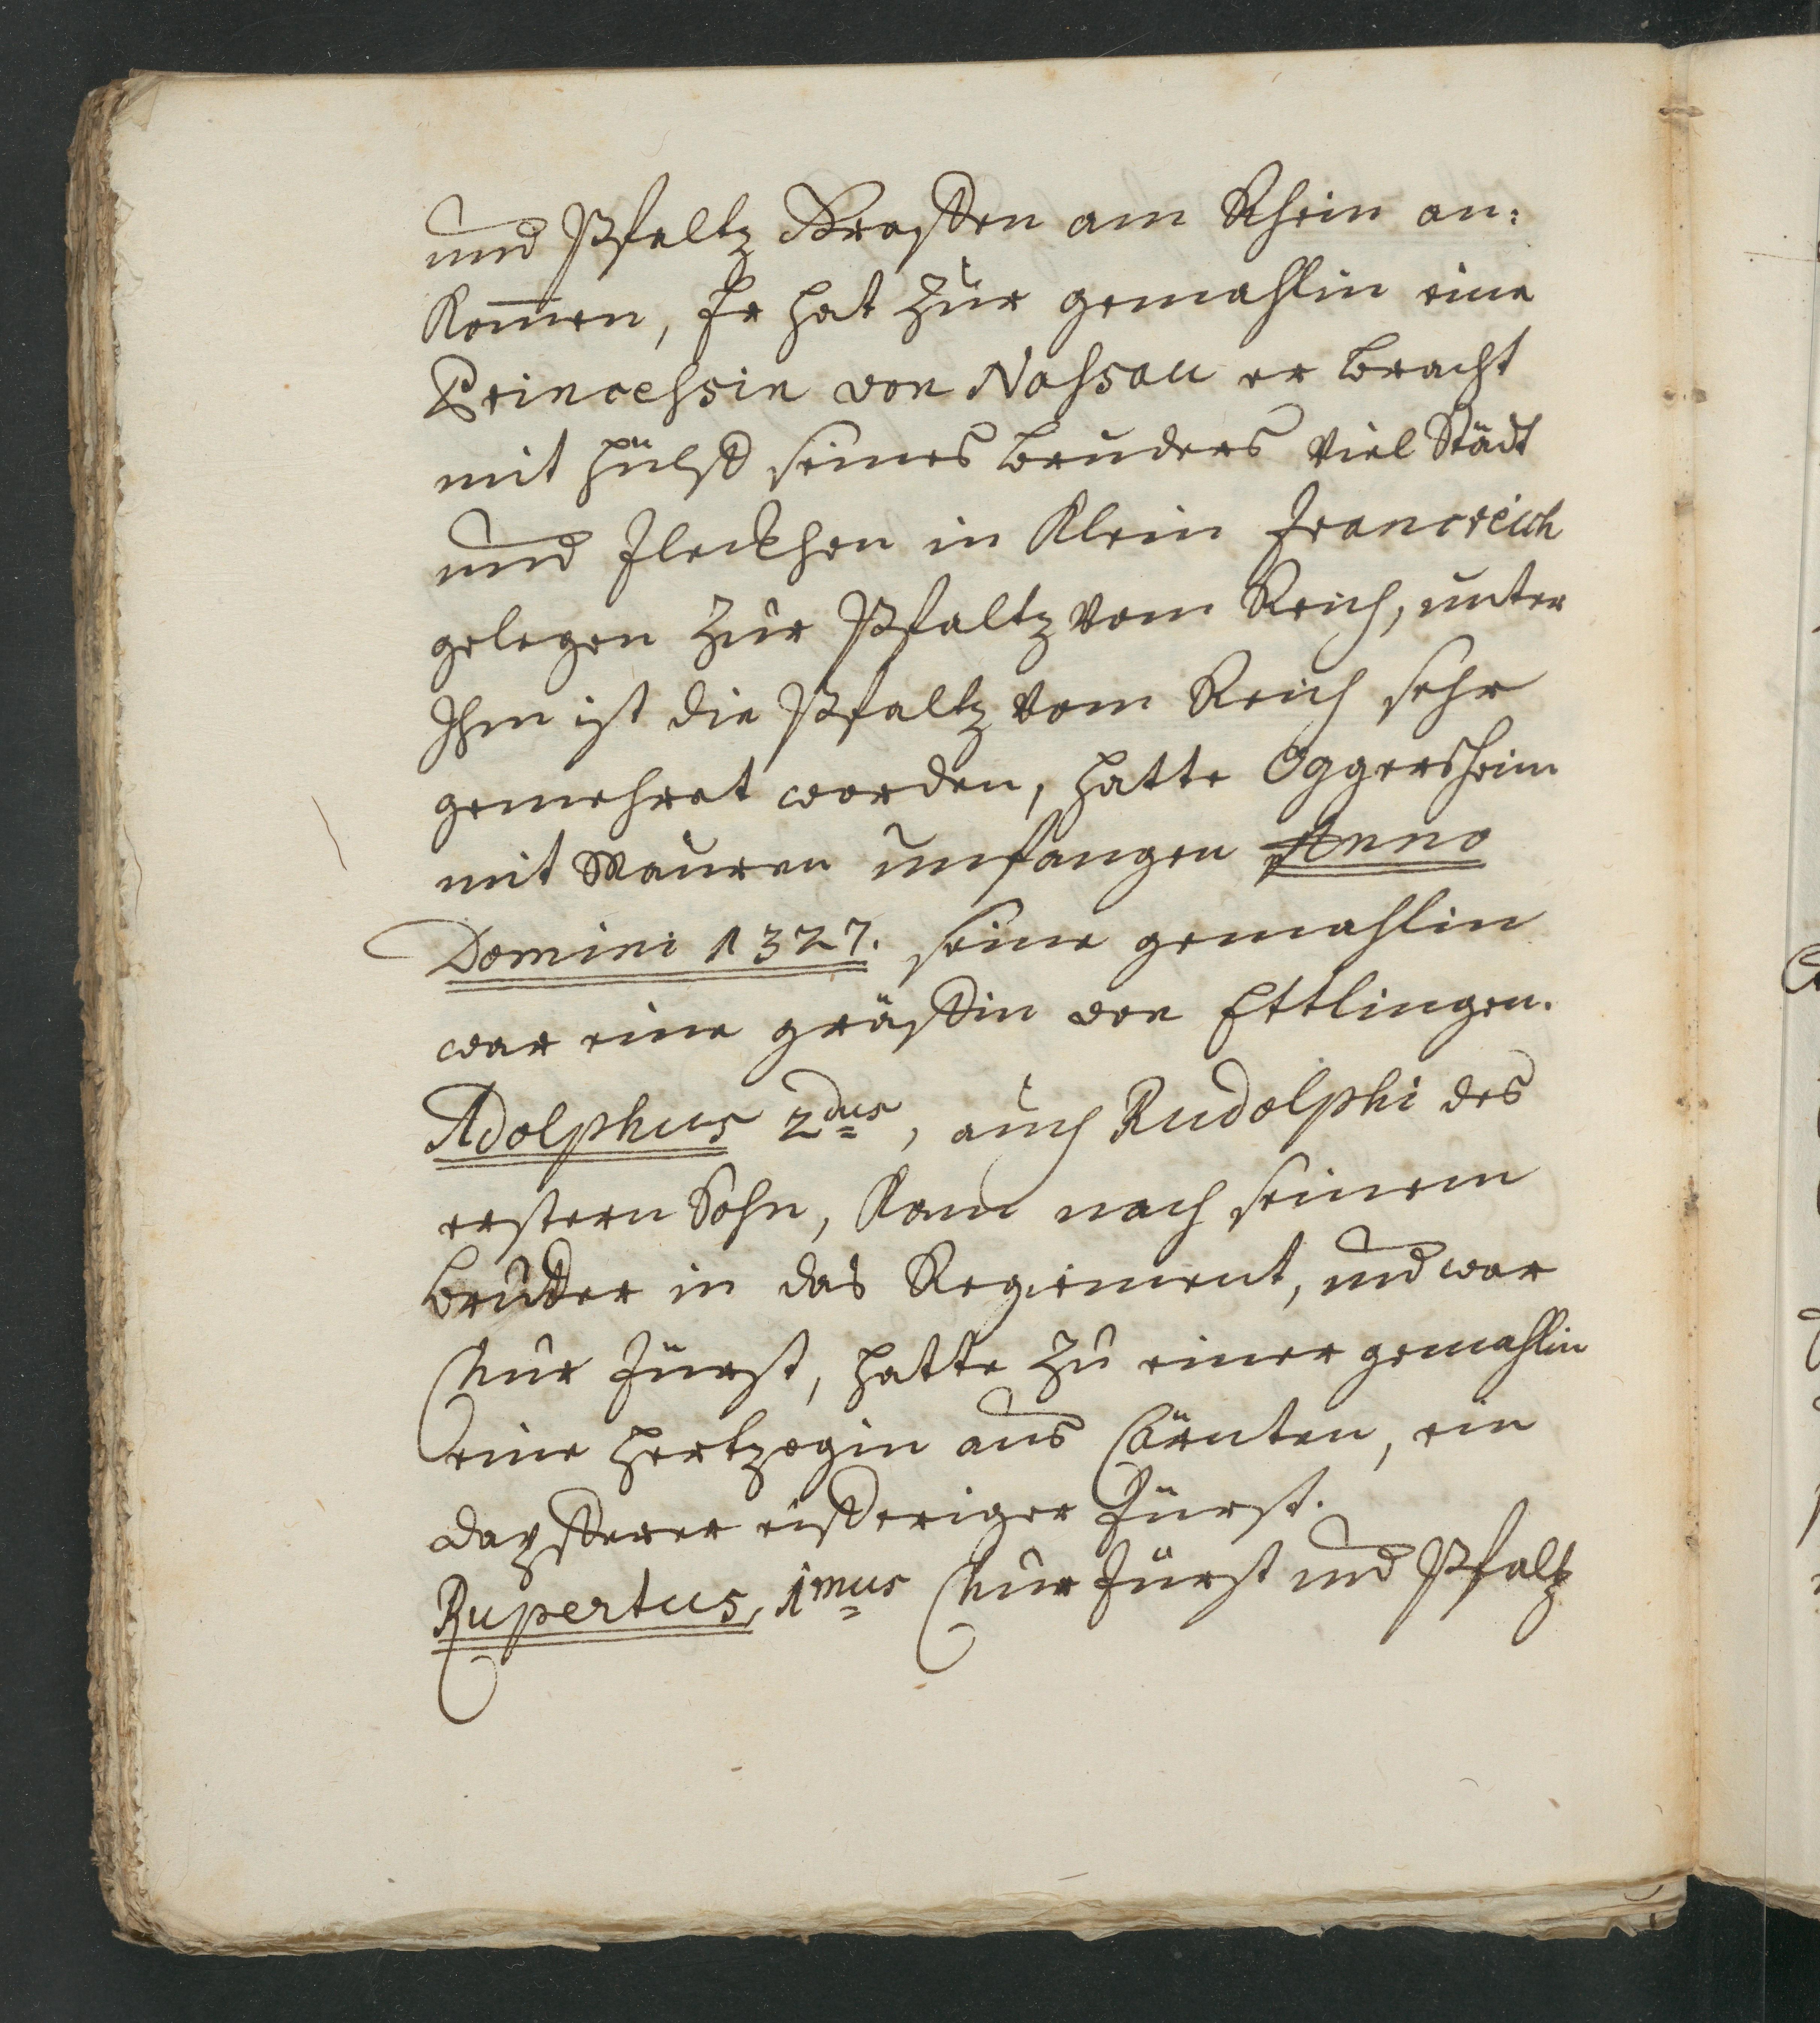 und Pfaltz Graffen am Rhein an:
Kom̅en, Er hat zur gemahlin eine
Princessin von Nassau er bracht
mit hülff seines bruders viel Städt
und Fleckhen in Klein Francreich
gelegen zur Pfaltz vom Reich, unter
Ihm ist die Pfaltz vom Reich sehr
gemehret worden, hatte Oggersheim
mit Mauren umfangen Anno
Domini 1327. seine gemahlin
war eine gräffin von Ettlingen.
Adolphus 2dus, auch Rudolphi des
erstern Sohn, Kam nach seinem
bruder in das Regiement, und war
Chur Fürst, hatte zu einer gemahlin
eine Hertzogin aus Cärnten, ein
dapfferer eifferiger Fürst.
Rupertus, 1mus Chur Fürst und Pfaltz